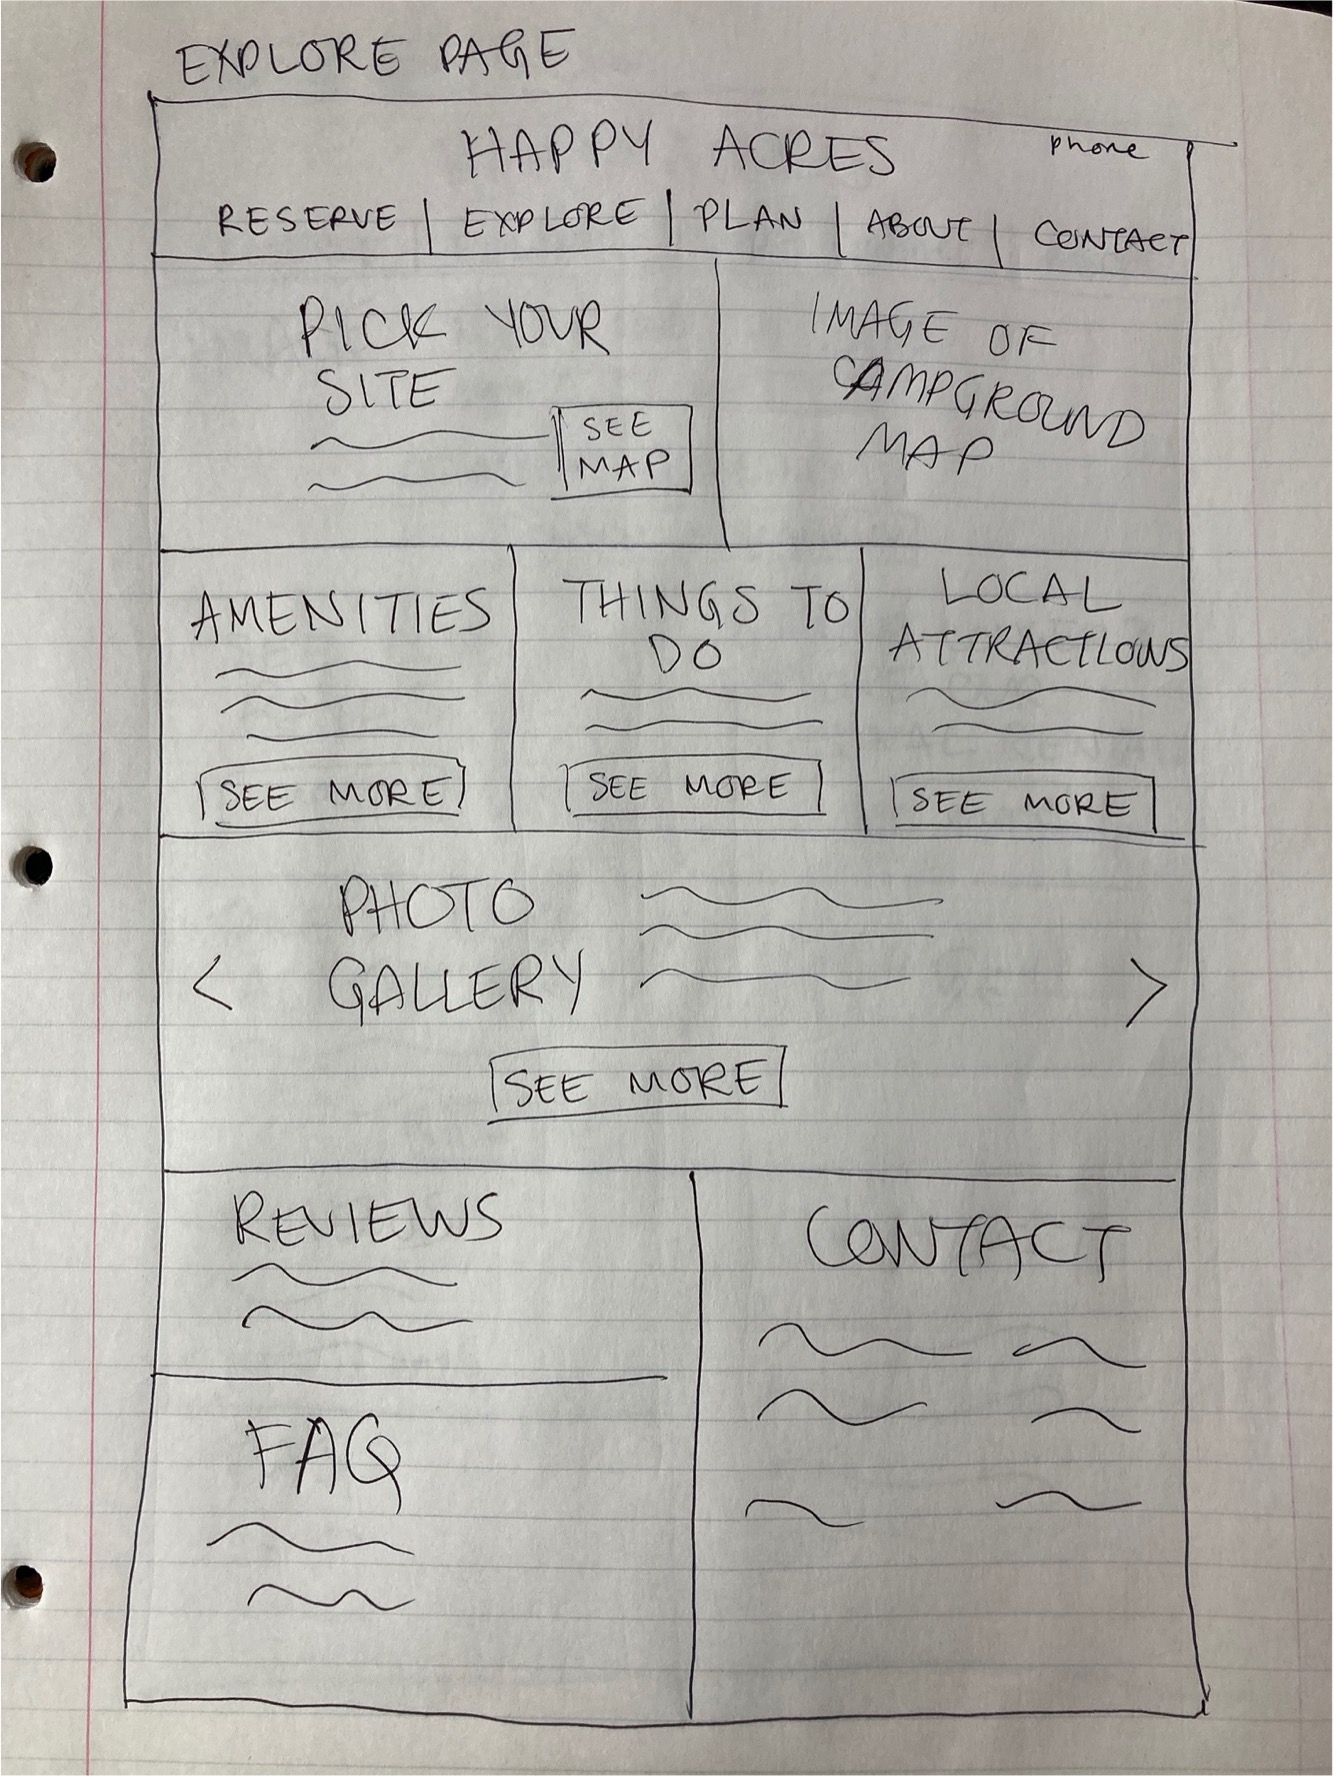 EXPLORE PAGE
HAPPY ACRES
phone
RESERVE | EXPLORE | PLAN | ABOUT | CONTACT
PICK YOUR
SITE
SEE
MAP
IMAGE OF
CAMPGROUND
MAP
AMENITIES
SEE MORE
THINGS TO
DO
SEE MORE
LOCAL
ATTRACTIONS
SEE MORE
PHOTO
GALLERY
<
>
SEE MORE
REVIEWS
FAQ
CONTACT